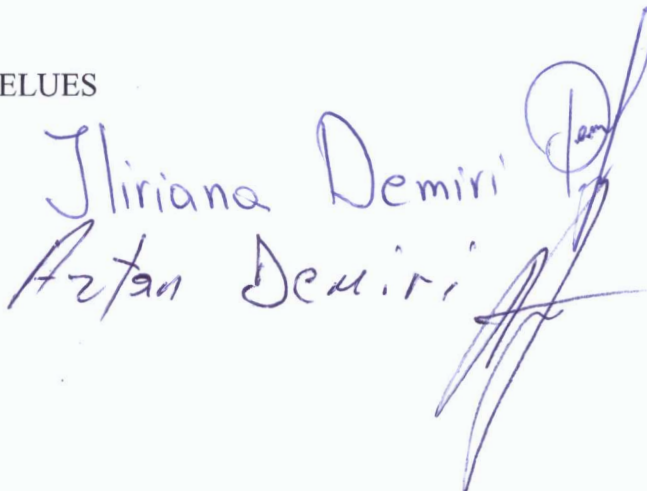 ELUES
Iliriana Demiri Dem
Artan Demiri